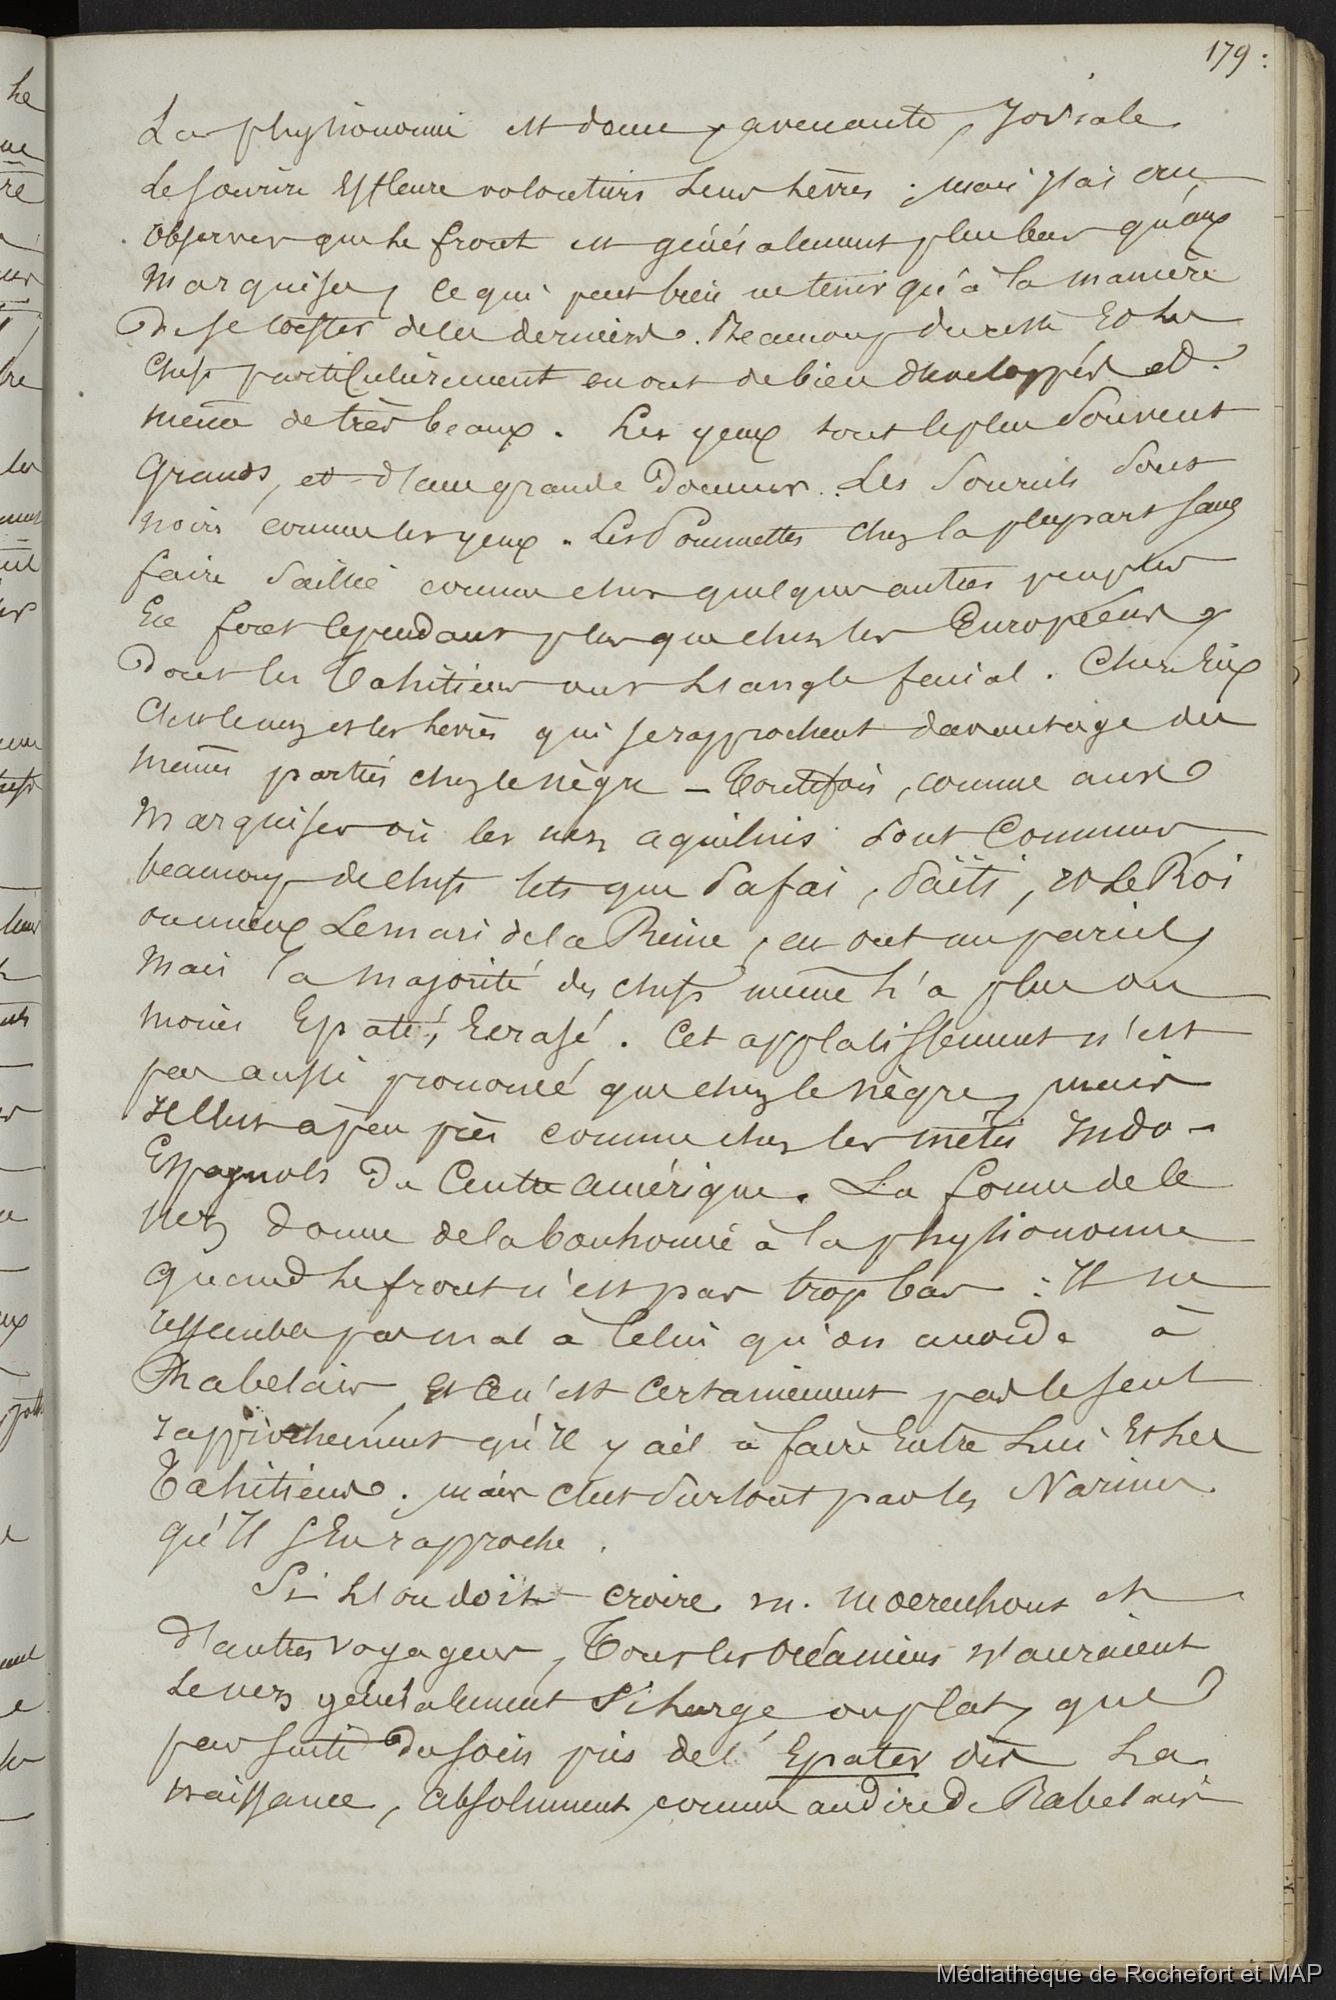 179 :
La physionomie est douce, avenante, Joviale
Le sourire Effleure volontiers Leurs Lèvres ; mais J'ai cru
observer que Le front est généralement plus bas qu'aux
Marquises, ce qui peut bien ne tenir qu'à la manière
de se coëffer de ces derniers. Beaucoup du reste Et Les
Chefs particulièrement en ont de bien développés et
même de très beaux. Les yeux sont le plus souvent
Grands, et d'une grande Douceur. Les Sourcils sont
noirs comme les yeux. Les Pommettes chez la plupart sans
faire saillie comme chez quelques autres peuples
En font cependant plus que chez les Européens
dont les Tahitiens ont L'angle facial. Chez Eux
C'est le nez et les lèvres qui se rapprochent davantage des
mêmes parties chez le nègre – Toutefois, comme aux
Marquises où les nez aquilins sont Communs
beaucoup de chefs tels que Tafai, Taïti, et Le Roi
ou mieux Le mari de la Reine, en ont un pareil,
Mais la majorité des chefs même L'a plus ou
moins Epaté, Ecrasé. Cet applatissement n'est
pas aussi prononcé que chez le nègre, mais
Il l'est à peu près comme chez les métis Indo-
Espagnols du Centre Amérique. La forme de ce
nez donne de la bonhomie à la physionomie
Quand Le front n'est pas trop bas : Il ne
ressemble pas mal à Celui qu'on accorde à
Rabelais, et Ce n'est Certainement pas le seul
rapprochement qu'Il y ait à faire Entre Lui Et Les
Tahitiens. mais c'est surtout par les Narines
qu'Il s'En rapproche.
Si L'on doit croire M. Moerenhout et
d'autres voyageurs, Tous les Océaniens n'auraient
Le nez généralement Si Large ou plat, que
par suite du soin pris de l'Epater dès La
naissance, absolument comme au dire de Rabelais